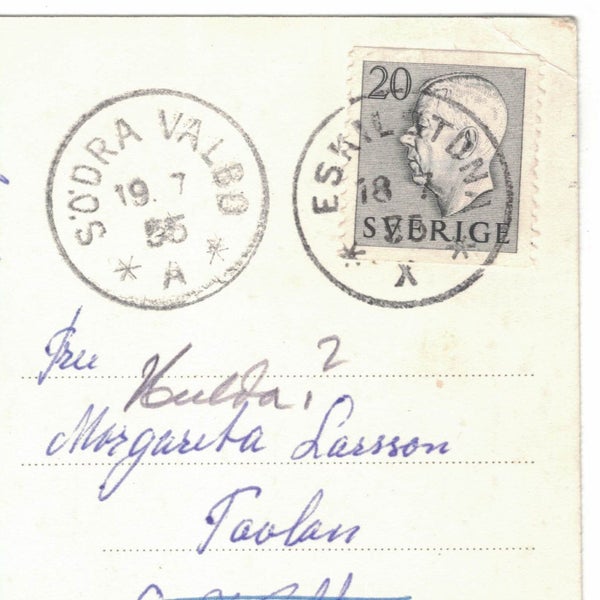 SÖDRA VALBO
19. 7
55
* A *
20
SVERIGE
ESKILSTUNA
18 7
55
* X *
Fru
Hulda.?
Margareta Larsson
Taolan